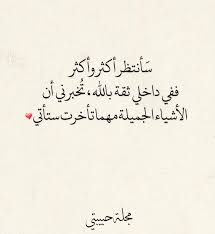 سَأنتظر أكثر وأكثر
ففي داخلي ثقة بالله، تُخبرني أن
الأشياء الجميلة مهما تأخرت ستأتي❤
مجلة حبيبتي